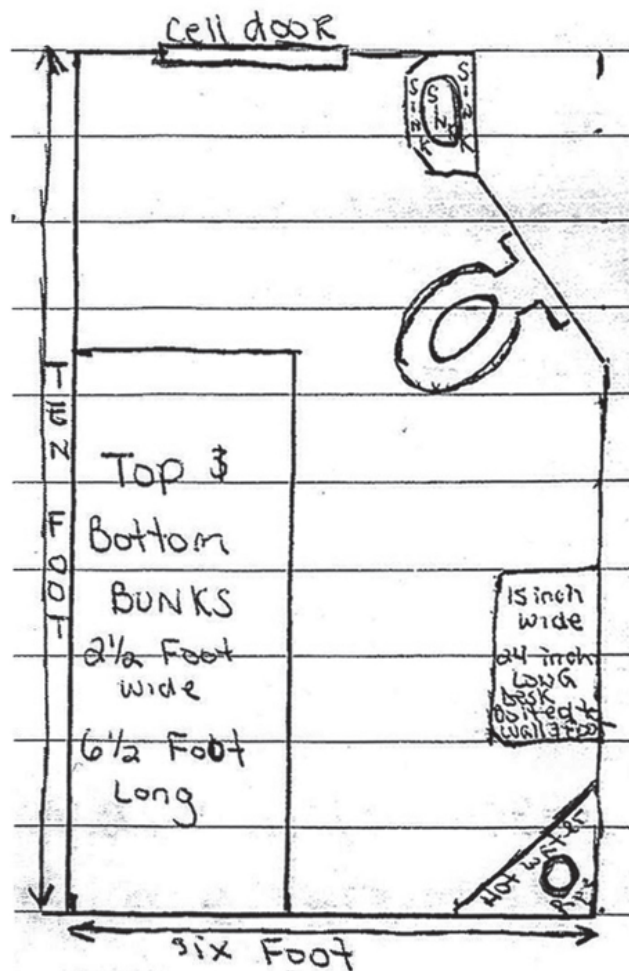 Cell door
SINK
SINK
SINK
TEN FOOT
Top &
Bottom
BUNKS
2 1/2 Foot
wide
6 1/2 Foot
Long
15 inch
wide
24 inch
LONG
DESK
Bolted to
wall &
Hot water
Pipe
six Foot